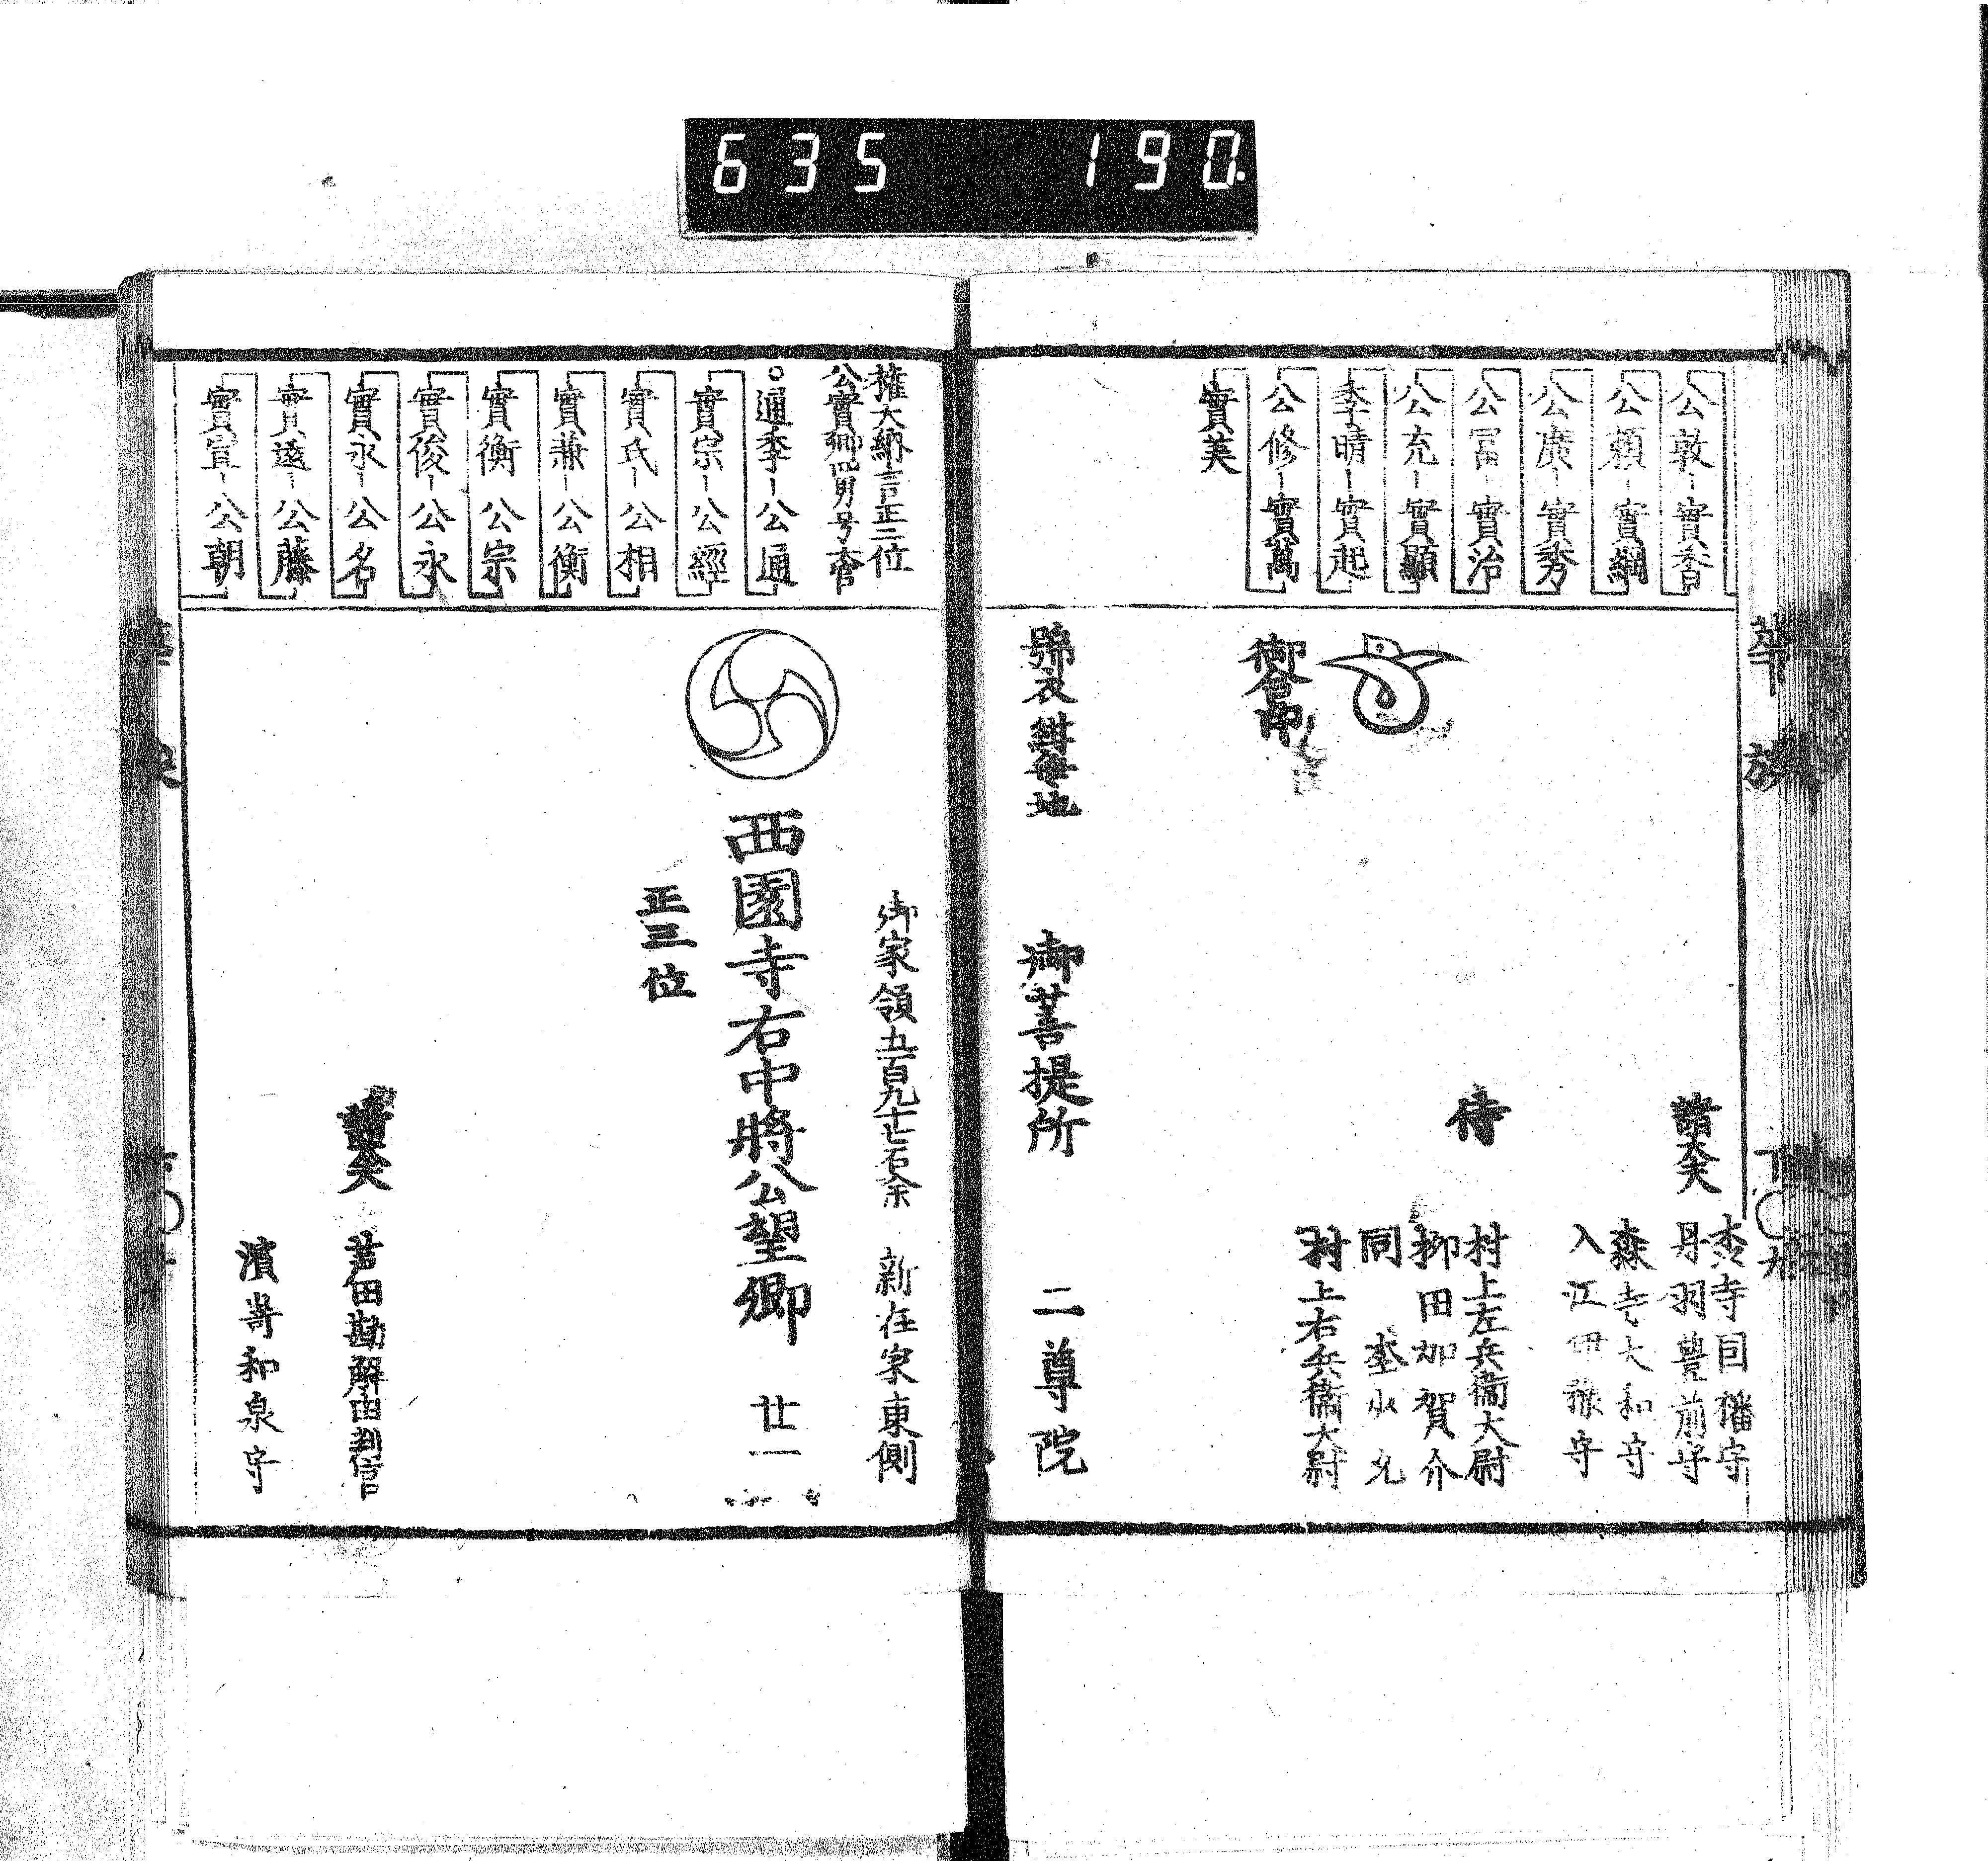 635 190.
公敦-實香
公頼-實綱
公廣-實秀
公冨-實治
公充-實顯
季晴-實起
公修-實萬
實美
御合印
諸大夫
丹羽豊前守
森寺大和守
入江伊豫守
侍
村上左兵衞大尉
柳田加賀介
同
村上右兵衞大尉
號衣紺無地
御菩提所
二尊院
華族
權大納言正二位
公實卿四男号大宮
○通季-公通
實宗-公經
實氏-公相
實兼-公衡
實衡 公宗
實俊-公永
實永-公名
實遠-公藤
實宣-公朝
御家領五百九十七石余
新在家東側
西園寺右中將公望卿
廿一
正三位
諸大夫
芦田勘解由判官
濱嵜和泉守